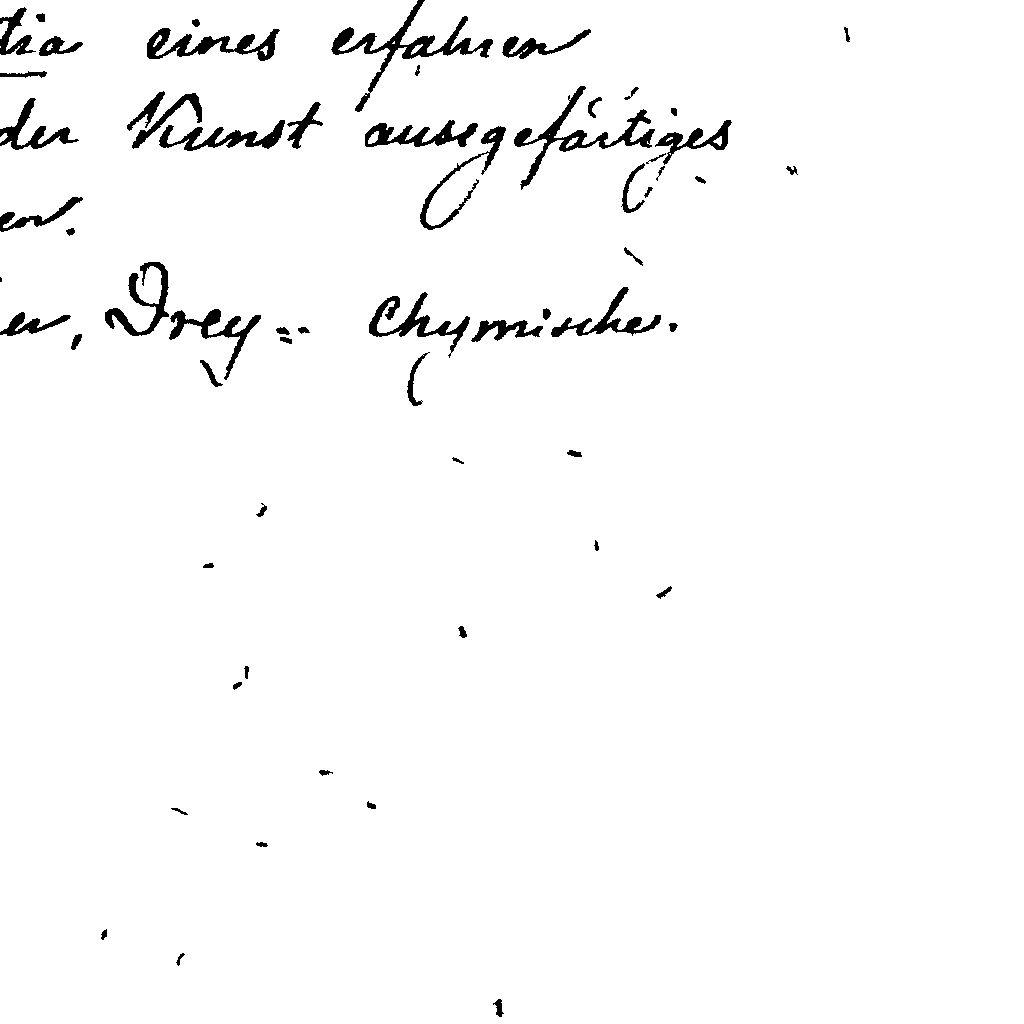 tia eines erfahren
der Kunst ausgefärtiges
en.
er, Drey= Chymische.